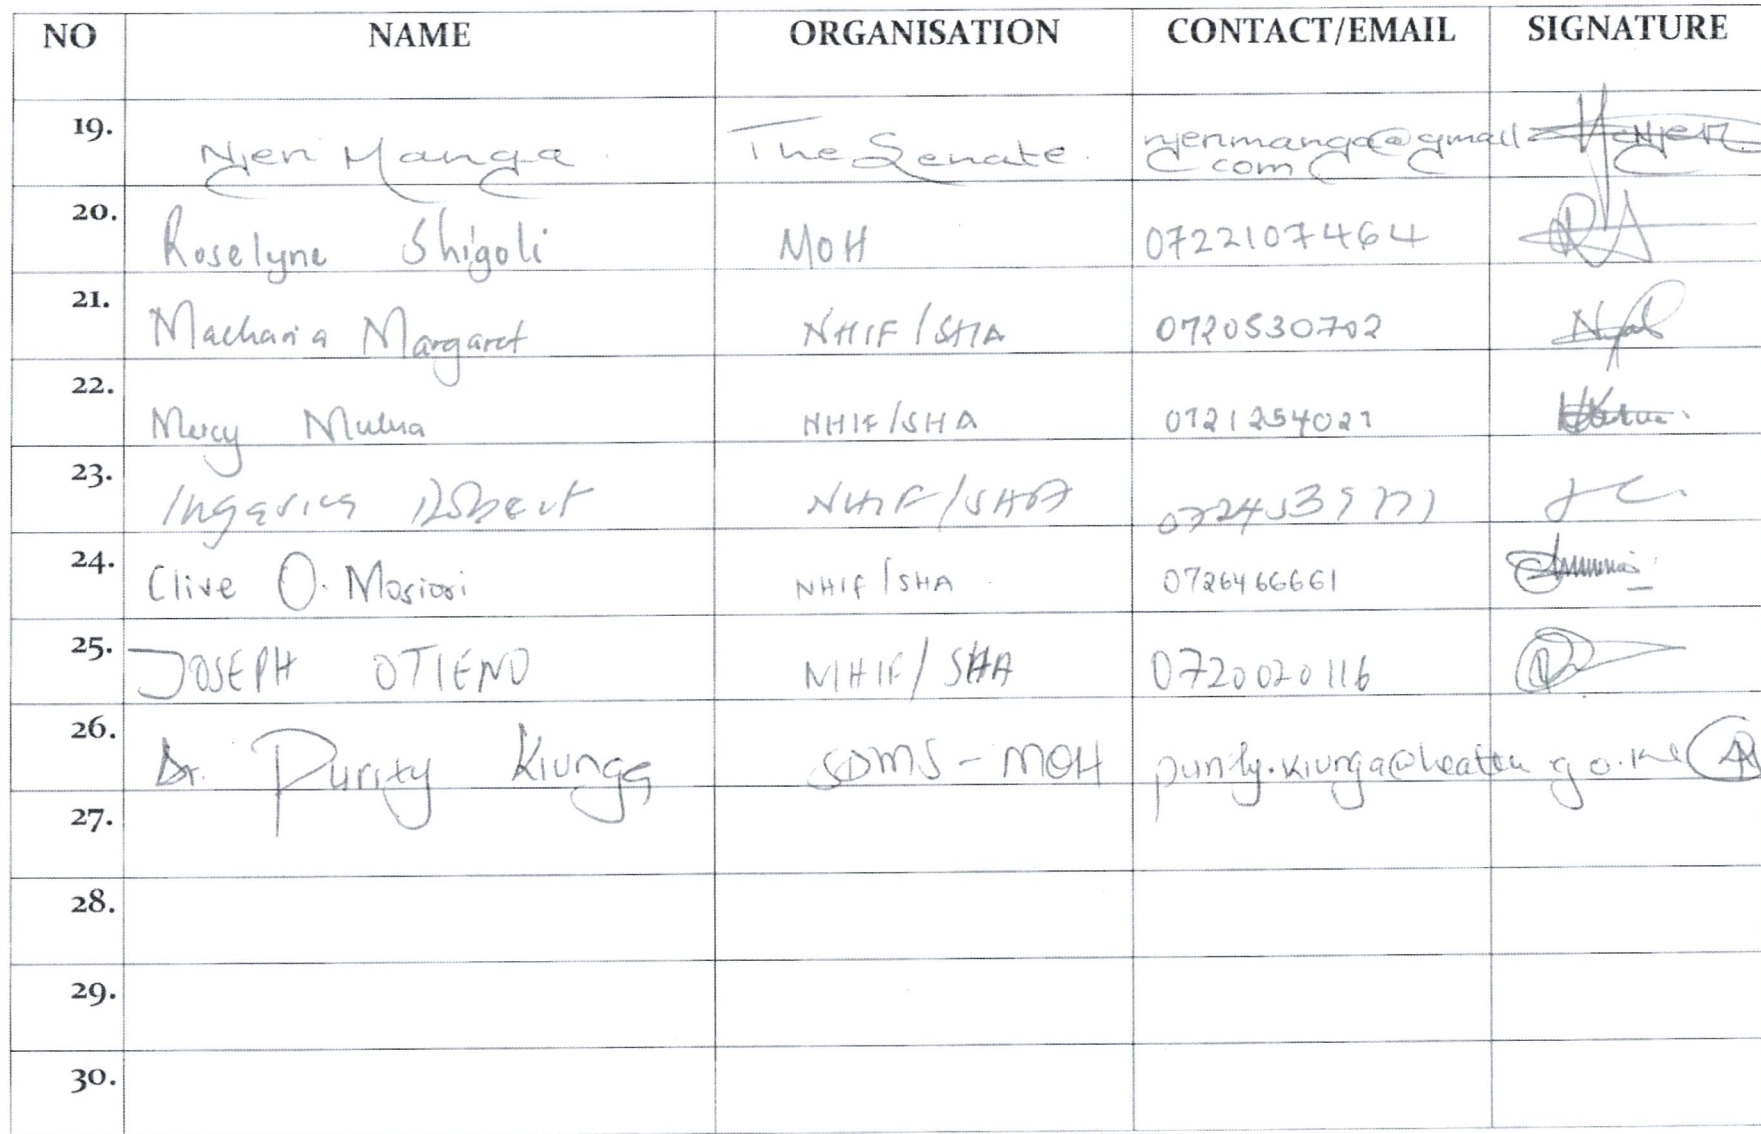 NO NAME ORGANISATION CONTACT/EMAIL SIGNATURE
19. Njeri Manga. The Senate. njerimanga@gmail
com
20. Roselyne Shigoli MOH 0722107464
21. Macharia Margaret NHIF/SHA 0720530702
22. Mercy NHIF/SHA
23. Robert NHIF/SHA
24. Clive O. Mosiori NHIF/SHA 0726466661
25. JOSEPH OTIENO NHIF/SHA 0720020116
26. Dr. Purity Kiunga SDMS-MOH purity.kiunga@health.go.ke
27.
28.
29.
30.